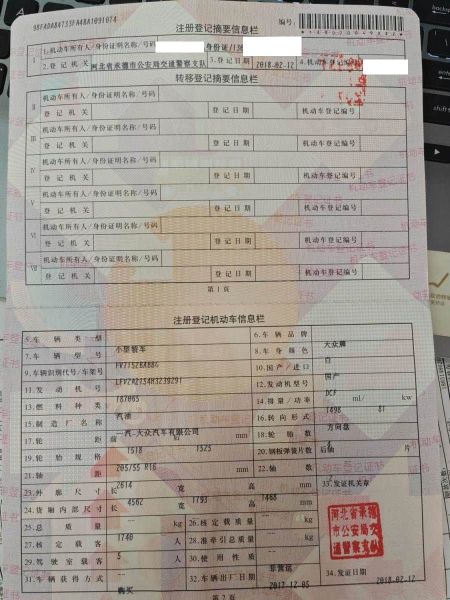 注册登记摘要信息栏
编号:
Ⅰ
1.机动车所有人/身份证明名称/号码 身份证/13
2.登记机关 河北省承德市公安局交通警察支队 3.登记日期 2018-02-12 4.机动车登记编号
转移登记摘要信息栏
Ⅱ 机动车所有人/身份证明名称/号码
登记机关 登记日期 机动车登记编号
Ⅲ 机动车所有人/身份证明名称/号码
登记机关 登记日期 机动车登记编号
Ⅳ 机动车所有人/身份证明名称/号码
登记机关 登记日期 机动车登记编号
Ⅴ 机动车所有人/身份证明名称/号码
登记机关 登记日期 机动车登记编号
Ⅵ 机动车所有人/身份证明名称/号码
登记机关 登记日期 机动车登记编号
Ⅶ 机动车所有人/身份证明名称/号码
登记机关 登记日期 机动车登记编号
第1页
注册登记机动车信息栏
5.车辆类型 小型轿车 6.车辆品牌 大众牌
7.车辆型号 8.车身颜色 白
9.车辆识别代号/车架号 10.国产/进口 国产
11.发动机号 T87065 12.发动机型号 DCF
13.燃料种类 汽油 14.排量/功率 1498 ml/ 81 kw
15.制造厂名称 一汽-大众汽车有限公司 16.转向形式 方向盘
17.轮距 前 1518 后 1525 mm 18.轮胎数 4
19.轮胎规格 205/55 R16 20.钢板弹簧片数 后轴 片
21.轴距 2614 mm 22.轴数
23.外廓尺寸 长 4562 宽 1793 高 1468 mm 33.发证机关章
24.货厢内部尺寸 长 宽 高 mm
25.总质量 1740 kg 26.核定载质量 kg
27.核定载客 5 人 28.准牵引总质量 kg
29.驾驶室载客 人 30.使用性质 非营运
31.车辆获得方式 购买 32.车辆出厂日期 2017-12-05 34.发证日期 2018-02-12
河北省承德市公安局交通警察支队
第2页